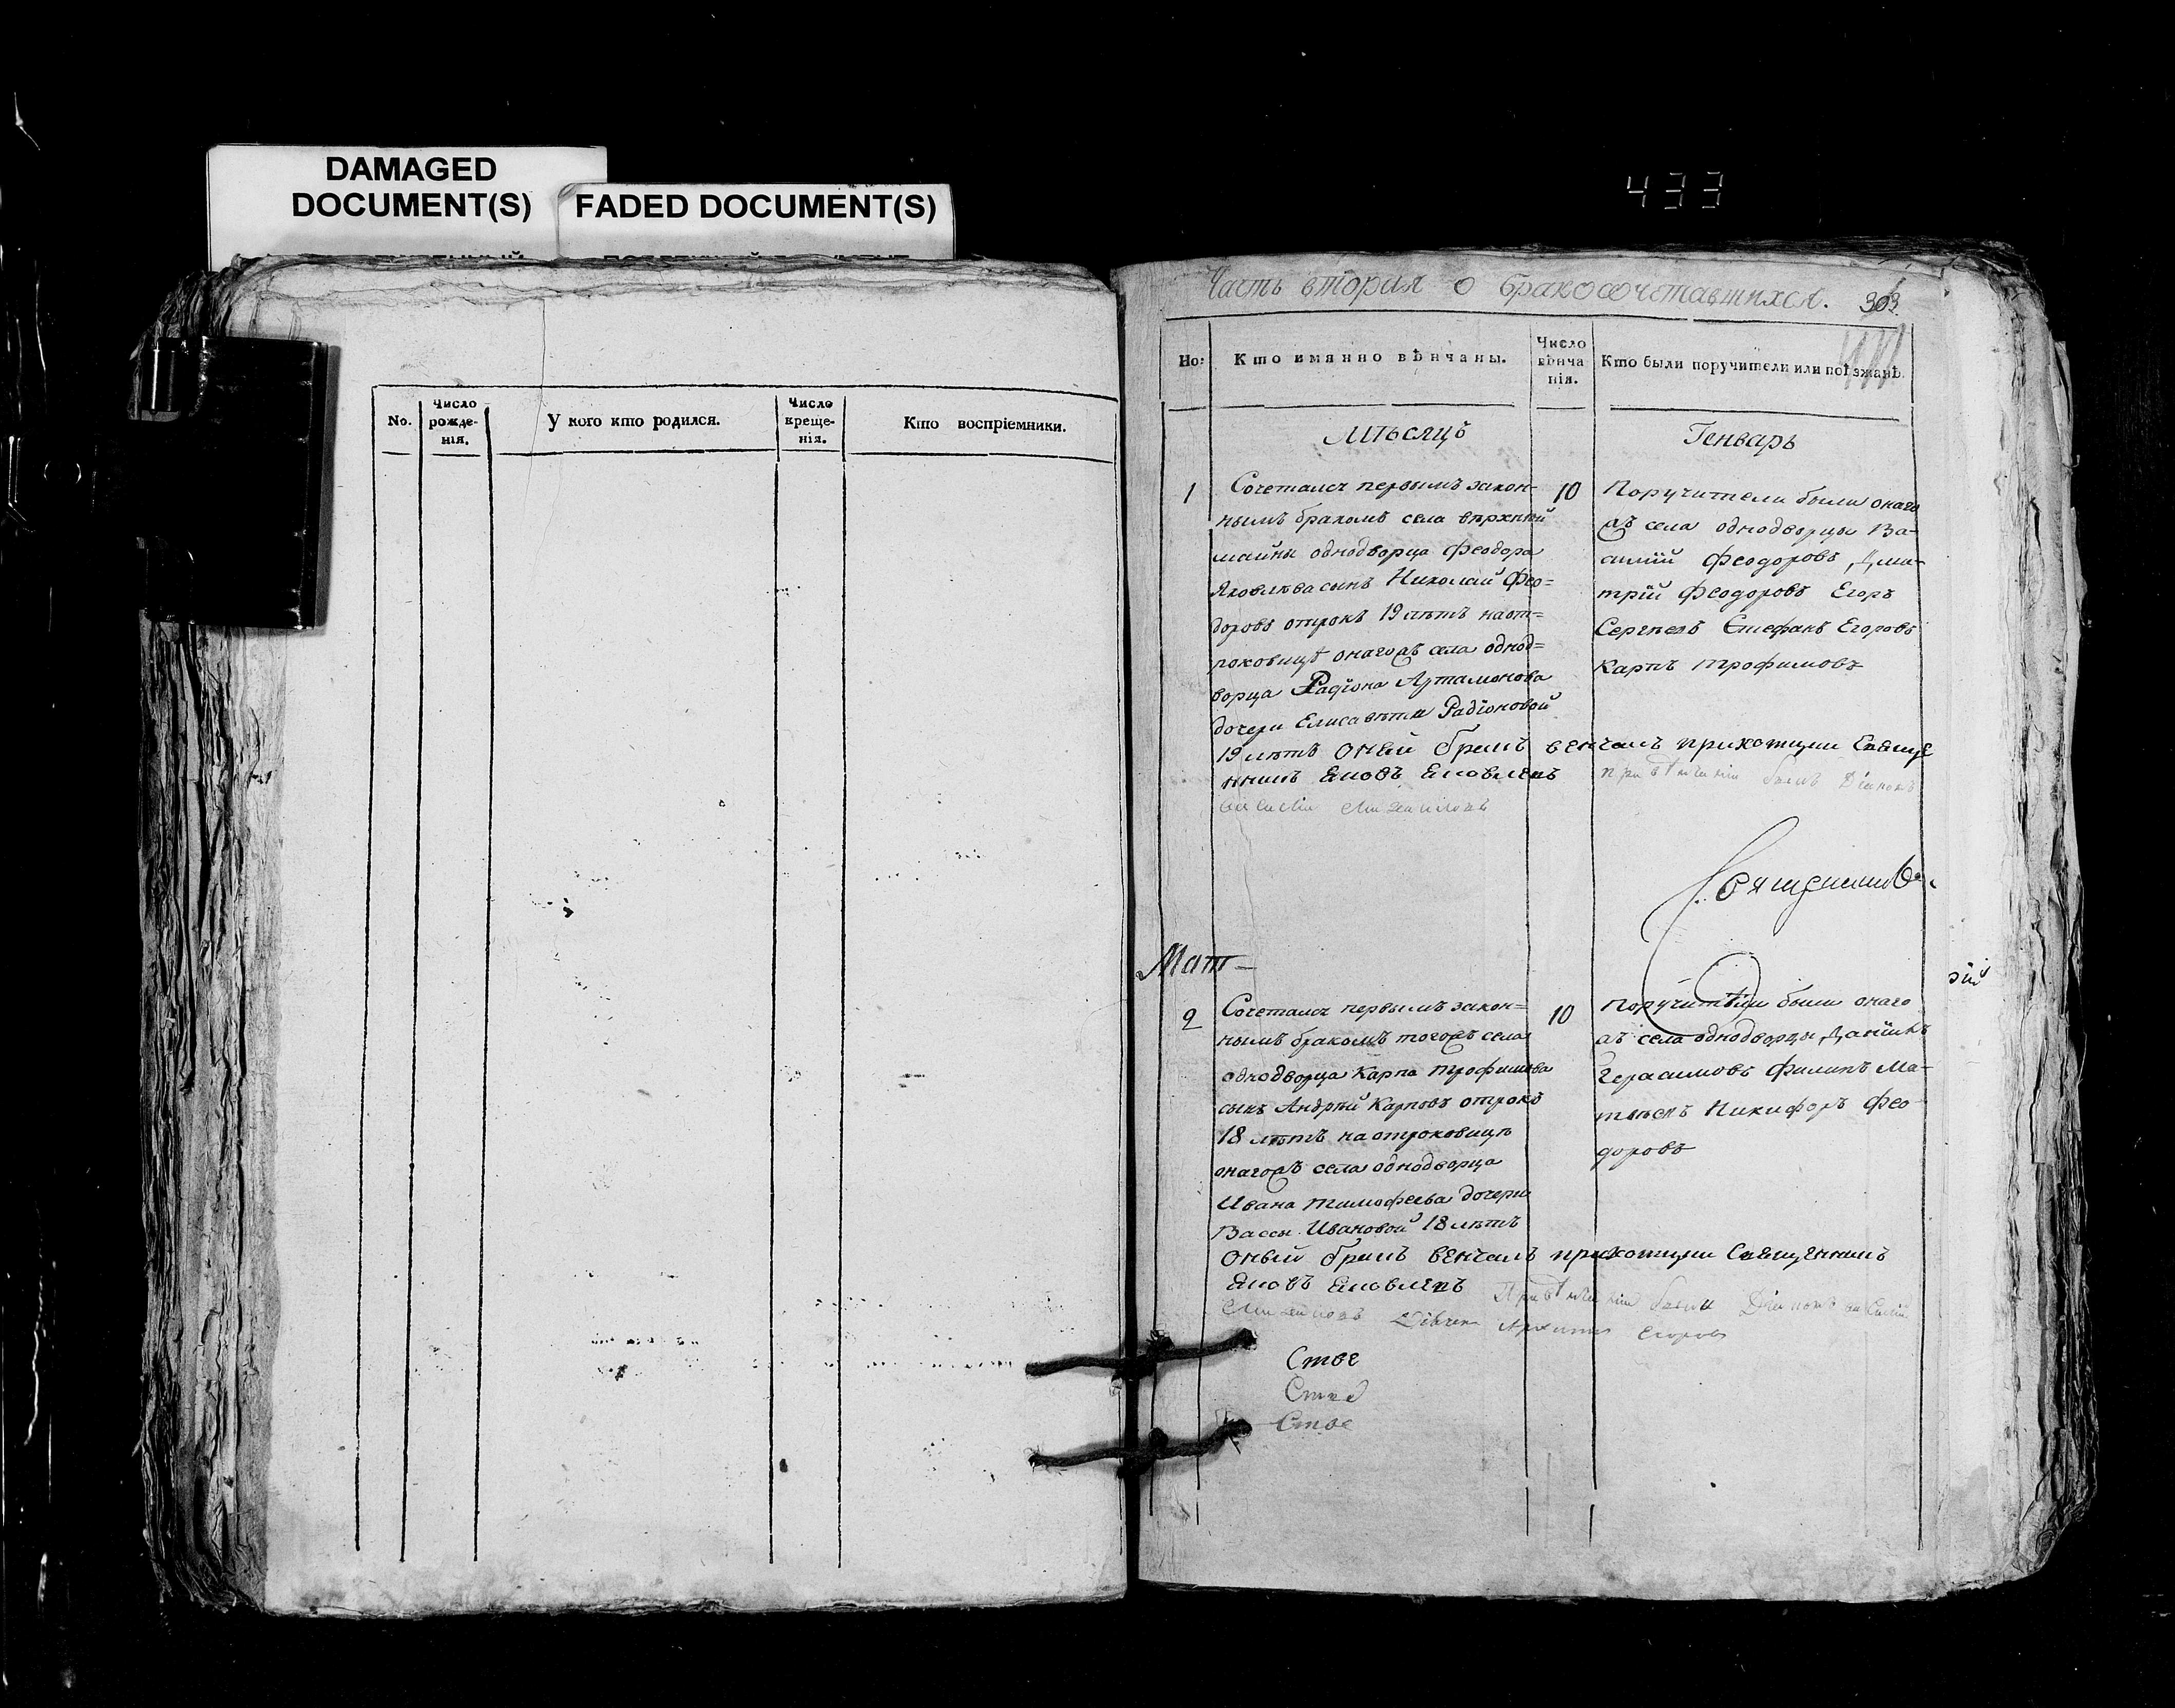 DAMAGED
DOCUMENT(S)
FADED DOCUMENT(S)
433
No.
Число рожде-нія.
У кого кто родился.
Число креще-нія.
Кто воспріемники.
Часть вторая о бракосочетавшихся. 303
Но:
Кто имянно вѣнчаны.
Число вѣнча нія.
Кто были поручители или поѣзжанѣ.
Мѣсяцъ
Генварь
1
Сочетался первымъ закон-
нымъ бракомъ села верхней
майны однодворца Феодора
Яковлева сынъ Николай Фео=
доровъ отрокъ 19 лѣтъ на от=
роковицѣ онагожъ села однод=
ворца Радіона Артамонова
дочери Елисаветы Радіоновой
19 лѣтъ оный бракъ венчалъ приходцкии Свяще
нникъ Яковъ Яковлевъ при венчании былъ Діаконъ
10
Поручители были онаго
жъ села однодворцы Ва-
силій Феодоровъ, Дми-
трій Феодоровъ Егоръ
Сергѣевъ Стефанъ Егоровъ
Карпъ Трофимовъ
Мат-
рій
2
Сочетался первымъ закон=
нымъ бракомъ тогожъ села
однодворца Карпа Трофимова
сынъ Андрей Карповъ отрокъ
18 лѣтъ на отроковицѣ
онагожъ села однодворца
Ивана Тимофеева дочери
Вассы Ивановой 18 лѣтъ
Оный бракъ венчалъ приходцкии Священникъ
Яковъ Яковлевъ
Егоровъ
10
Поручители были онаго
жъ села однодворцы, Даніилъ
Герасимовъ Филипъ Ма-
твѣевъ Никифоръ Фео
доровъ